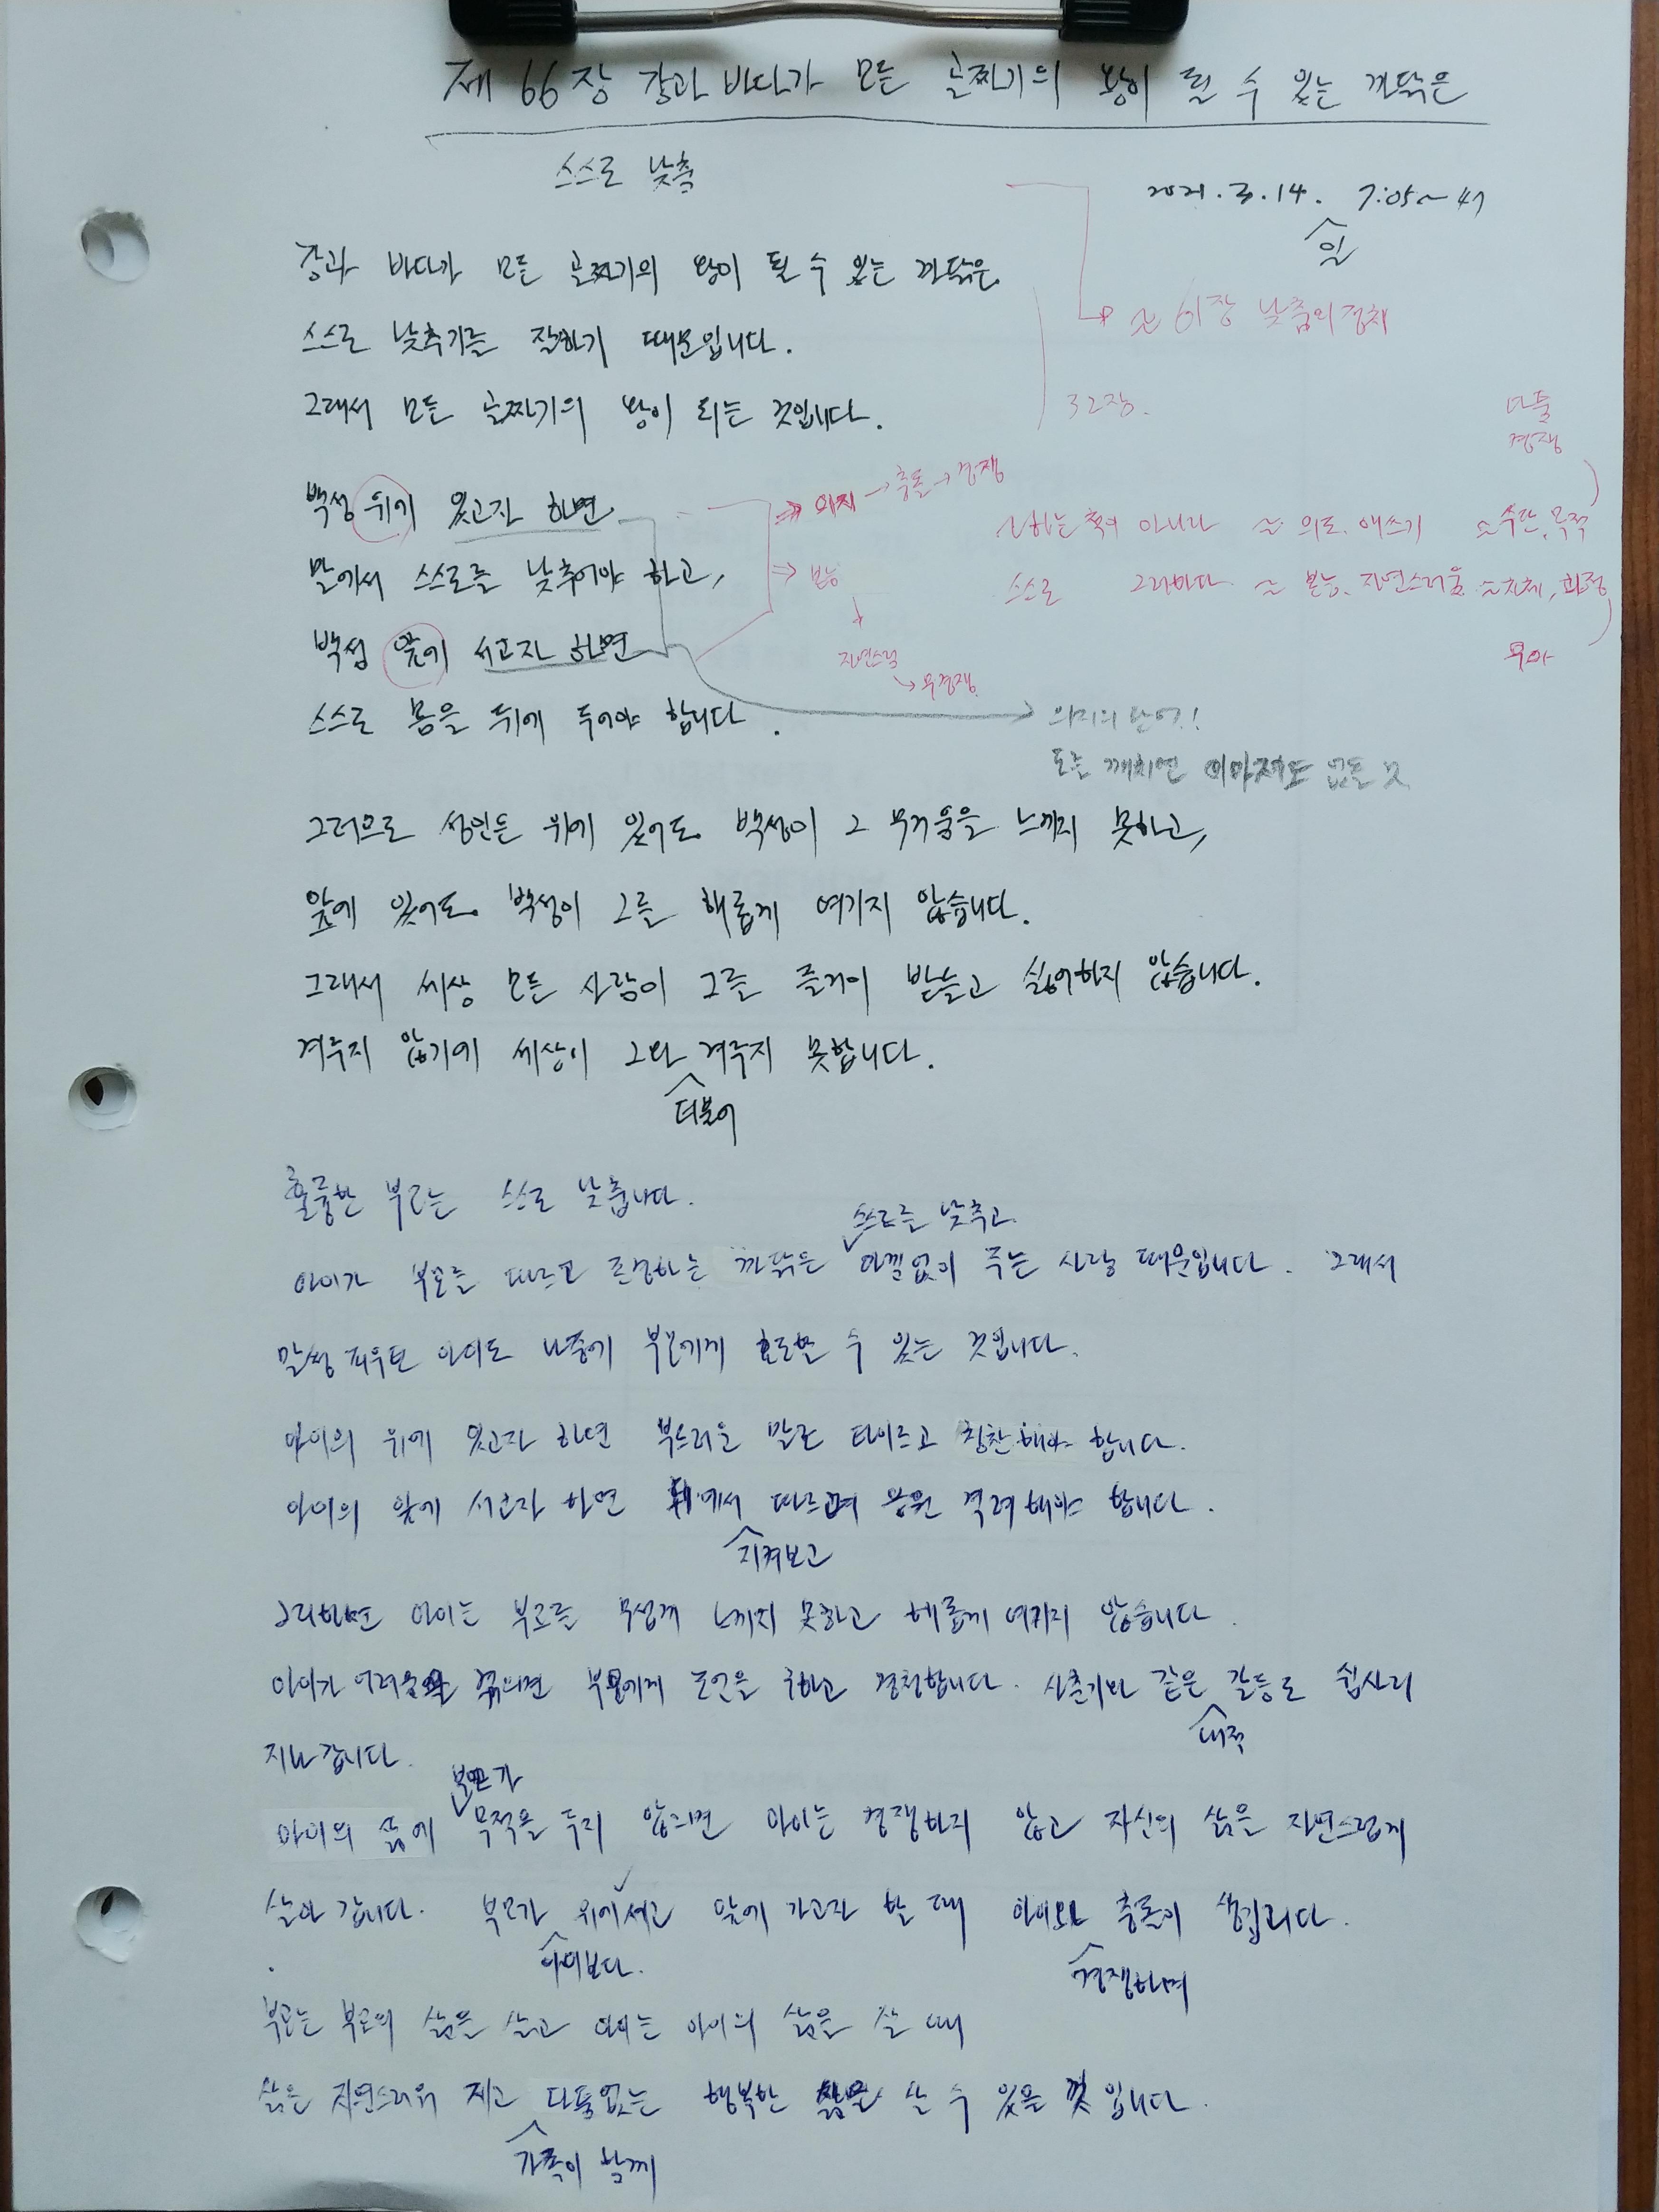 제 66장 강과 바다가 모든 골짜기의 왕이 될 수 있는 까닭은
스스로 낮춤
2021. 3. 14. 7:05~47
일
강과 바다가 모든 골짜기의 왕이 될 수 있는 까닭은
스스로 낮추기를 잘하기 때문입니다.
그래서 모든 골짜기의 왕이 되는 것입니다.
~ 61장 낮춤의 정치
32장.
백성 위에 있고자 하면
말에서 스스로를 낮추어야 하고,
백성 앞에 서고자 하면
스스로 몸을 뒤에 두어야 합니다.
⇒ 의지 → 충돌 → 경쟁
⇒ 본능
자연스럭
→ 무경쟁
다툼
경쟁
~하는 축이 아니라 ~ 의도. 애쓰기 ~수단, 목적
스스로 그러하다 ~ 본능. 자연스러움 ~자체, 과정
무아
의지의 단어!
도를 깨치면 이마저도 없을 것
그러므로 성인은 위에 있어도 백성이 그 무거움을 느끼지 못하고,
앞에 있어도 백성이 그를 해롭게 여기지 않습니다.
그래서 세상 모든 사람이 그를 즐거이 받들고 싫어하지 않습니다.
겨루지 않기에 세상이 그와 겨루지 못합니다.
더불어
훌륭한 부모는 스스로 낮춥니다.
스스로를 낮추고
아이가 부모를 따르고 존경하는 까닭은 아낌없이 주는 사랑 때문입니다. 그래서
말썽 피우던 아이도 나중에 부모에게 효도할 수 있는 것입니다.
아이의 위에 있고자 하면 부드러운 말로 타이르고 칭찬해야 합니다.
아이의 앞에 서고자 하면 뒤에서 따르며 응원 격려해야 합니다.
지켜보고
그리하면 아이는 부모를 무섭게 느끼지 못하고 해롭게 여기지 않습니다.
아이가 어려움을 겪으면 부모에게 조언을 구하고 경청합니다. 사춘기와 같은 갈등도 쉽사리
내적
지나갑니다.
부모가
아이의 삶에 목적을 두지 않으면 아이는 경쟁하지 않고 자신의 삶을 자연스럽게
살아 갑니다. 부모가 위에 서고 앞에 가고자 할 때 아이와 충돌이 생깁니다.
아이보다
경쟁하며
부모는 부모의 삶을 살고 아이는 아이의 삶을 살 때
삶은 자연스러워 지고 다툼없는 행복한 삶을 살 수 있을 것입니다.
가족이 함께